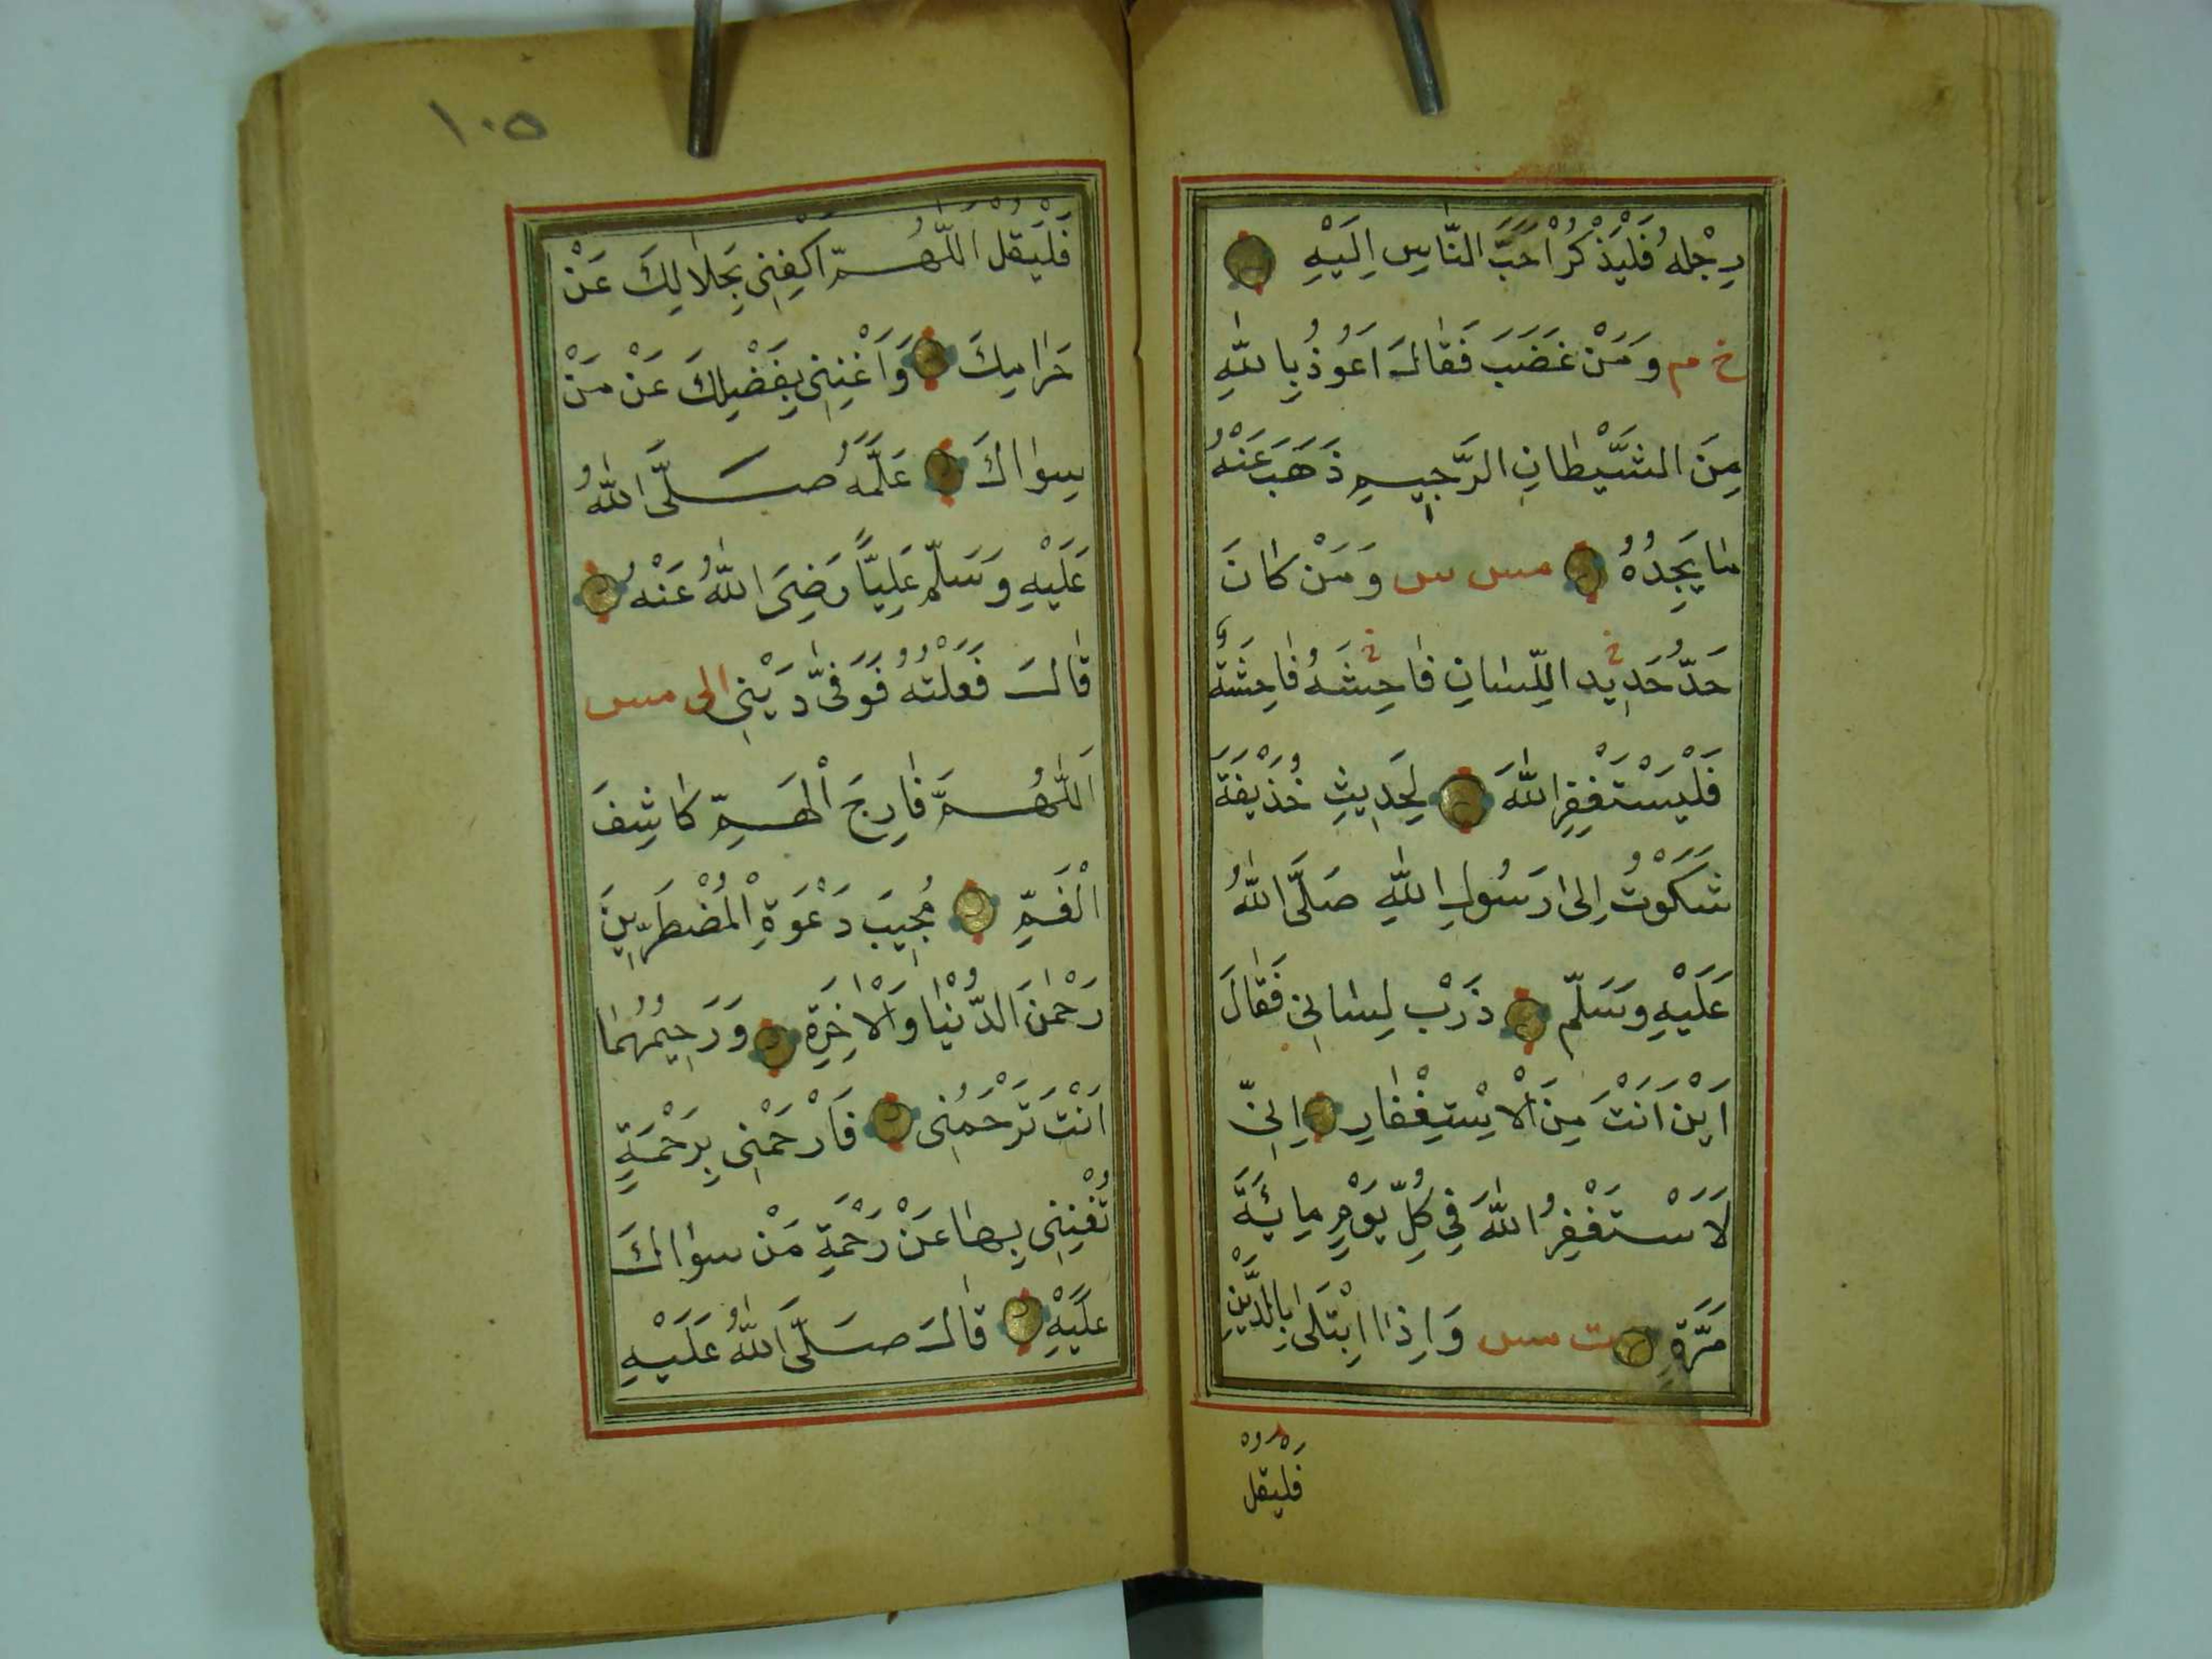 رِجْلُهُ فَلْيَذْكُرْ اَحَبَّ النَّاسِ اِلَيْهِ
خ م وَمَنْ غَضَبَ فَقَالَ اَعُوذُ بِاللهِ
مِنَ الشَّيْطَانِ الرَّجِيمِ ذَهَبَ عَنْهُ
مَا يَجِدُهُ مس س وَمَنْ كَانَ
حَدُّ حَدِيدِ اللِّسَانِ فَاحِشَهُ فَاحِشَةً
فَلْيَسْتَغْفِرِ اللهَ لِحَدِيثِ حُذَيْفَةَ
شَكَوْتُ اِلَى رَسُولِ اللهِ صَلَّى اللهُ
عَلَيْهِ وَسَلَّمَ ذَرْبَ لِسَانِي فَقَالَ
اَيْنَ اَنْتَ مِنَ الْاِسْتِغْفَارِ اِنِّي
لَاَسْتَغْفِرُ اللهَ فِي كُلِّ يَوْمٍ مِائَةَ
مَرَّةٍ ت مس وَاِذَا ابْتَلَى بِالدَّيْنِ
فليقل
١٠٥
فَلْيَقُلْ اَللّٰهُمَّ اكْفِنِي بِحَلَالِكَ عَنْ
حَرَامِكَ وَاَغْنِنِي بِفَضْلِكَ عَنْ مَنْ
سِوَاكَ عَلَّمَهُ صَلَّى اللهُ
عَلَيْهِ وَسَلَّمَ عَلِيًّا رَضِيَ اللهُ عَنْهُ
قَالَ فَعَلْتُهُ فَوَفَّى دَيْنِي الى مس
اَللّٰهُمَّ فَارِجَ الْهَمِّ كَاشِفَ
الْغَمِّ مُجِيبَ دَعْوَةِ الْمُضْطَرِّينَ
رَحْمٰنَ الدُّنْيَا وَالْاٰخِرَةِ وَرَحِيمُهُمَا
اَنْتَ تَرْحَمُنِي فَارْحَمْنِي بِرَحْمَةٍ
تُغْنِنِي بِهَا عَنْ رَحْمَةِ مَنْ سِوَاكَ
عَلَيْهِ قَالَ صَلَّى اللهُ عَلَيْهِ